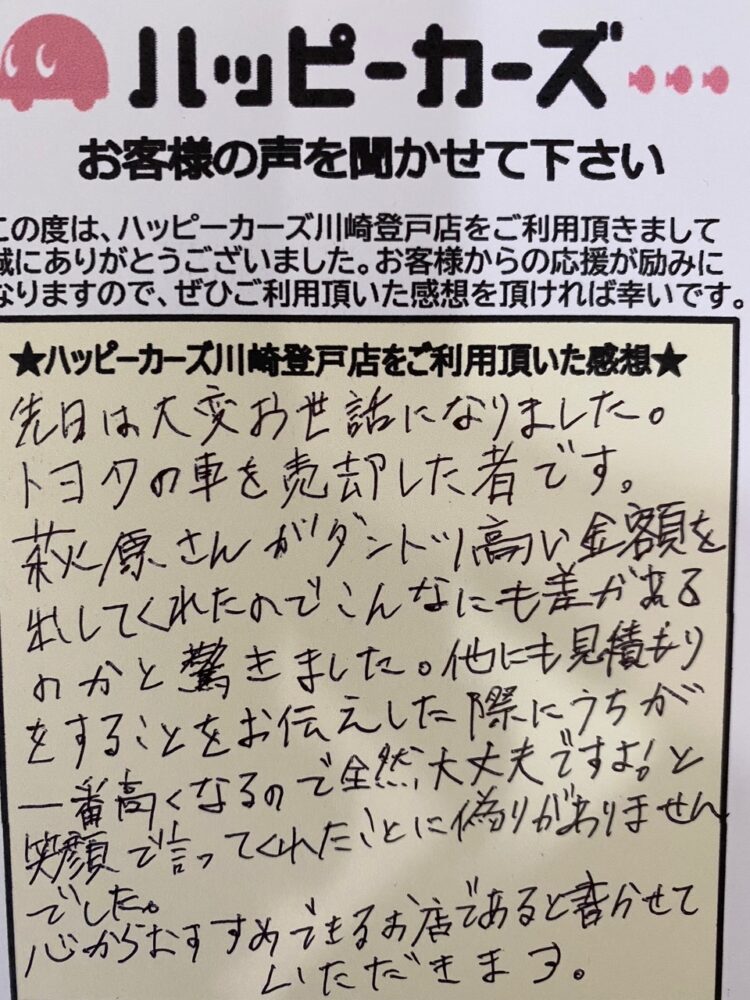 ハッピーカーズ
お客様の声を聞かせて下さい
この度は、ハッピーカーズ川崎登戸店をご利用頂きまして
誠にありがとうございました。お客様からの応援が励みに
なりますので、ぜひご利用頂いた感想を頂ければ幸いです。
★ハッピーカーズ川崎登戸店をご利用頂いた感想★
先日は大変お世話になりました。
トヨタの車を売却した者です。
萩原さんがダントツ高い金額を
出してくれたのでこんなにも差がある
のかと驚きました。他にも見積もり
をすることをお伝えした際にうちが
一番高くなるので全然大丈夫ですよ!と
笑顔で言ってくれたことに偽りがありません
でした。
心からおすすめできるお店であると書かせて
いただきます。